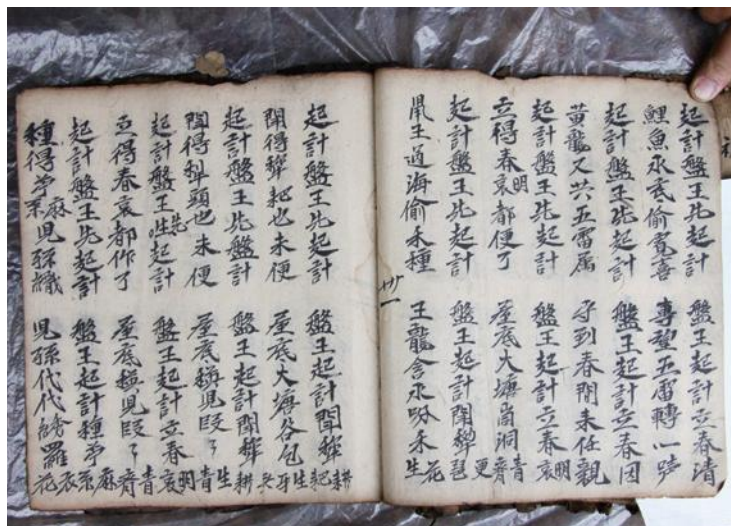 起計盤王先起計 盤王起計立春清
鯉魚水底偷喜 專望五雷轉一声
起計盤王先起計 盤王起計立春因
黃龍又共五雷属 子到春間未任親
起計盤王先起計 盤王起計立春明哀
立得春明哀都便了 屋底大塘崗洞青齊
起計盤王先起計 盤王起計開犂更琶
鼠王過海偷禾種 王龍含水禾花生
卅一
起計盤王先起計 盤王起計開犂耕耙
開得犂耙也未便 屋底大塘谷包生牙
起計盤王先盤計 盤王起計開犂耕
開得犂頭也未便 屋底秧見段了生青
起計盤王先起計 盤王起計立春明哀
立得春哀都作了 屋底秧見段了青齊
起計盤王先起計 盤王起計種苧麻系
種得苧麻系兒孫織 兒孫代代綉羅衣花